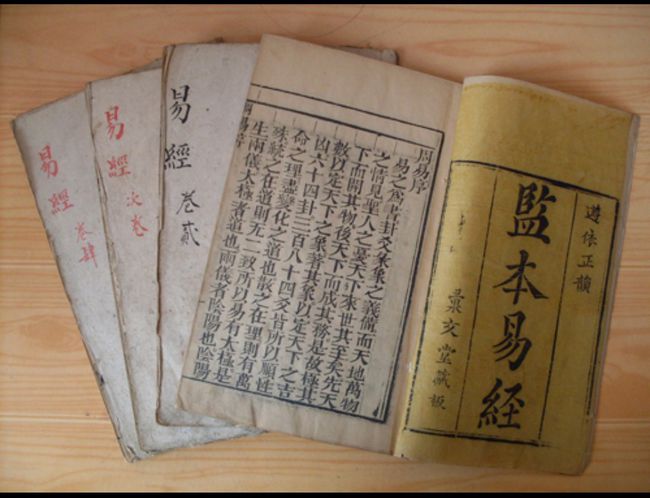 遵依正韻
監本易經
彙文堂藏板
周易序
易之為書卦爻彖象之義備而天地萬物
之情見聖人之憂天下來世其至矣先天
下而開其物後天下而成其務是故極其
數以定天下之象著其象以定天下之吉
凶六十四卦三百八十四爻皆所以順性
命之理盡變化之道也散之在理則有萬
殊統之在道則无二致所以易有太極是
生兩儀太極者道也兩儀者陰陽也陰陽
周易序
易經 卷貳
易經 次卷
易經 卷肆